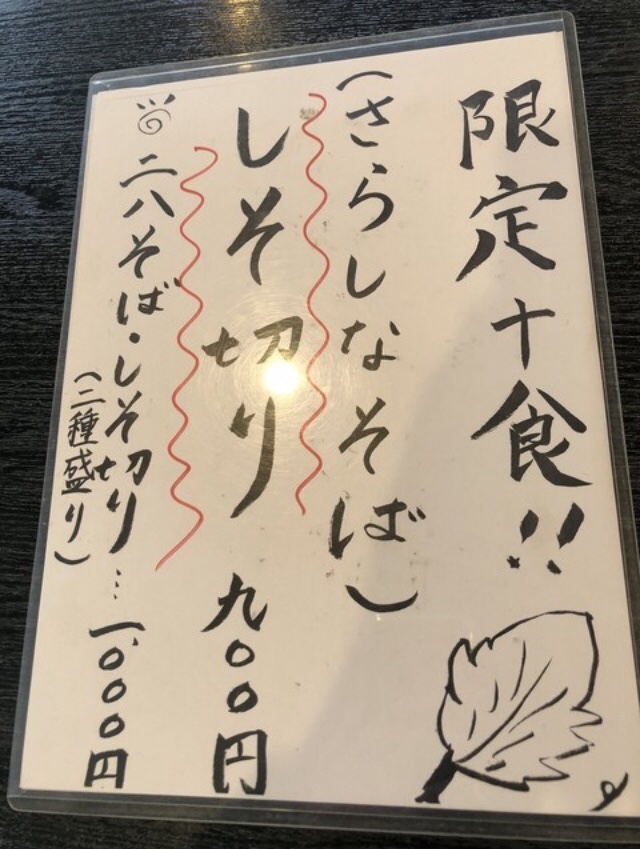 限定十食!!
(さらしなそば)
しそ切り 九〇〇円
二八そば・しそ切り… 一、〇〇〇円
(二種盛り)